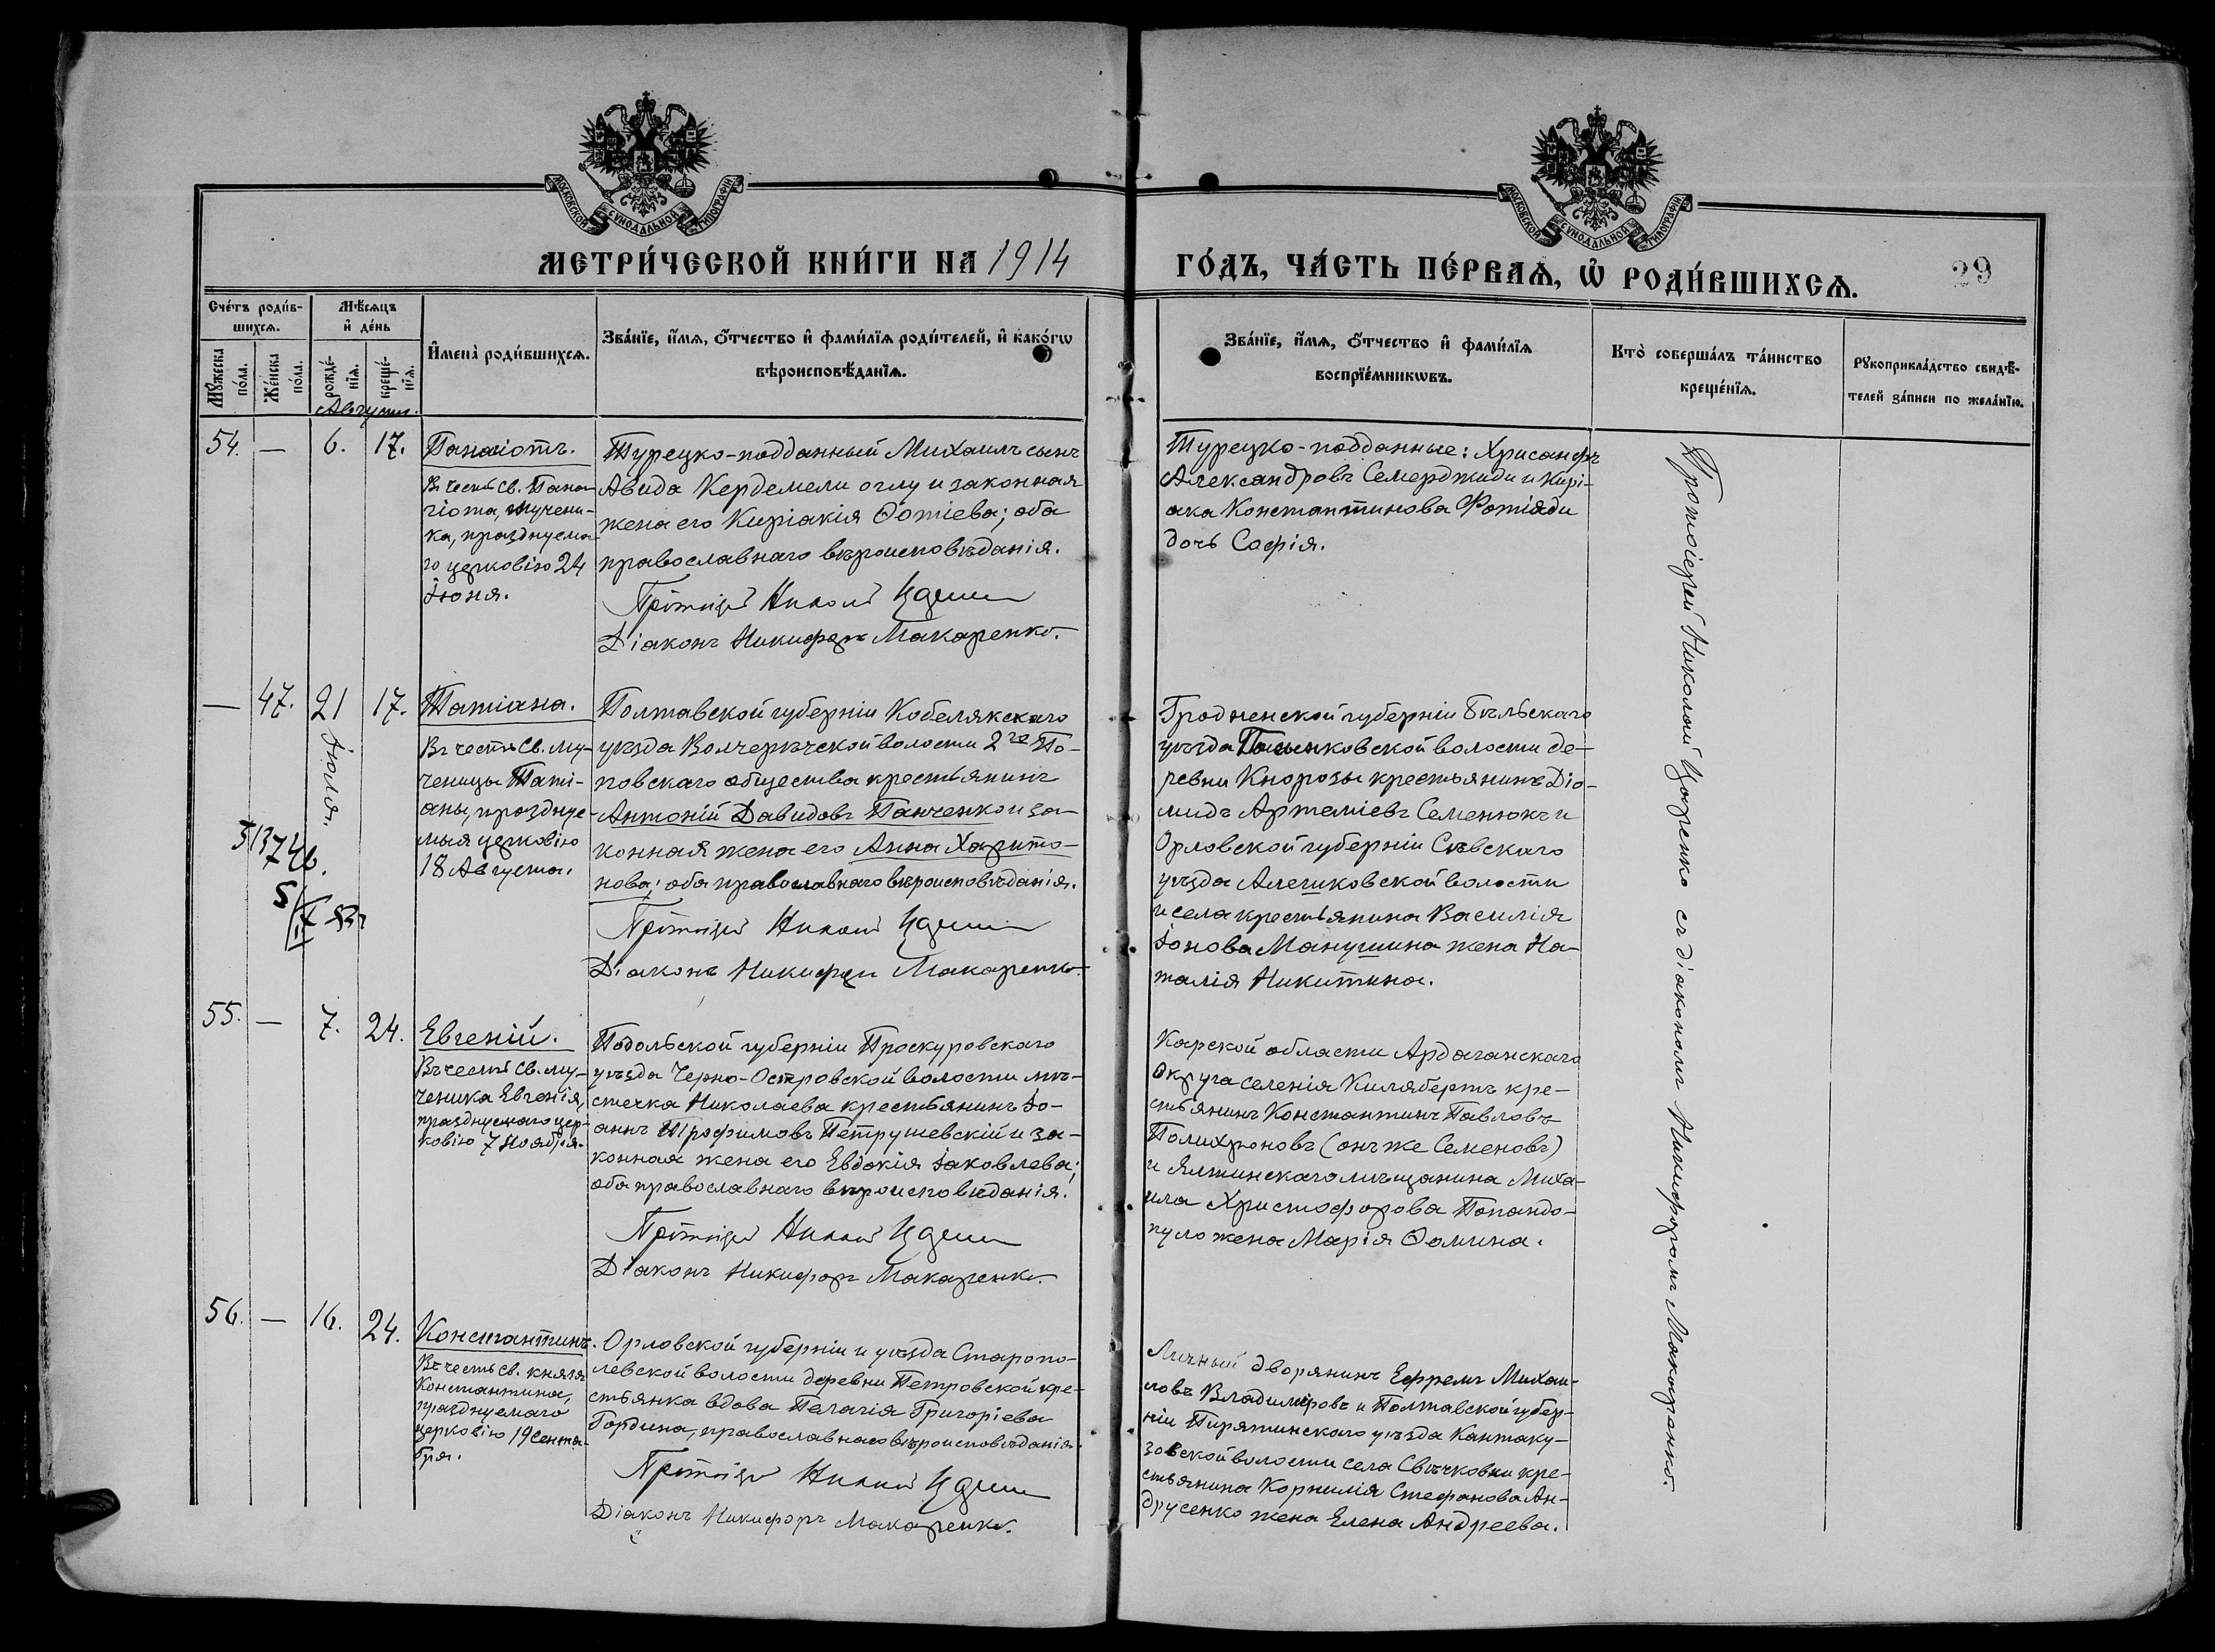 МОСКОВСКОЙ СѴНОДАЛЬНОЙ ТИПОГРАФІИ
МОСКОВСКОЙ СѴНОДАЛЬНОЙ ТИПОГРАФІИ
МЕТРИ́ЧЕСКОЙ КНИ́ГИ НА 1914
ГО́ДЪ, ЧА́СТЬ ПЕ́РВАѦ, Ѡ҆ РОДИ́ВШИХСѦ.
29
Сче́тъ роди́в-
шихсѧ.
Мꙋ́жеска
по́ла.
Же́нска
по́ла.
Мѣ́сѧцъ
и҆ де́нь
рожде́-
нїѧ.
креще́-
нїѧ.
Августъ.
И҆мена̀ роди́вшихсѧ.
Зва́нїе, и҆́мѧ, ѻ҆́тчество и҆ фами́лїѧ роди́телей, и҆ како́гѡ
вѣроисповѣ́данїѧ.
Зва́нїе, и҆́мѧ, ѻ҆́тчество и҆ фами́лїѧ
воспрїе́мникѡвъ.
Кто̀ соверша́лъ та́инство
креще́нїѧ.
Рꙋкоприкла́дство свидѣ́-
телей за́писи по жела́нїю.
54. — 6. 17.
Панаіотъ.
Въ честь св. Пана-
гіота, мучени-
ка, празднуема-
го церковію 24
Іюня.
Турецко-подданный Михаилъ сынъ
Авида Кердемели оглу и законная
жена его Киріакія Ѳотіева; оба
православнаго вѣроисповѣданія.
Діаконъ Никифоръ Макаренко.
Турецко-подданные: Хрисанфъ
Александровъ Семерджиди и Кирі-
ака Константинова Фотіяди
дочь Софія.
— 47. 21 17.
Іюля.
Татіана.
Въ честь Св. му-
ченицы Таті-
аны, праздну-
мыя церковію
18 Августа.
Полтавской губерніи Кобелякскаго
уѣзда Волчерѣчской волости 2го По-
повскаго общества крестьянинъ
Антоній Давидовъ Панченко и за-
конная жена его Анна Харито-
нова; оба православнаго вѣроисповѣданія.
Діаконъ Никифоръ Макаренко.
Гродненской губерніи Бѣльскаго
уѣзда волости де-
ревни Кнорозы крестьянинъ Діо-
мидъ Артеміевъ Семенюкъ и
Орловской губерніи Сѣвскаго
уѣзда Алешковской волости
и села крестьянина Василія
Іонова Манушина жена На-
талія Никитина.
55. — 7. 24.
Евгеній.
Въ честь Св. му-
ченика Евгенія,
празднуемаго цер-
ковію 7 Ноября.
Подольской губерніи Проскуровскаго
уѣзда Черно-Островской волости мѣ-
стечка Николаева крестьянинъ Іо-
аннъ Трофимовъ Петрушевскій и за-
конная жена его Евдокія Іаковлева;
оба православнаго вѣроисповѣданія.
Діаконъ Никифоръ Макаренко.
Карской области Ардаганскаго
округа селенія Килябертъ кре-
стьянинъ Константинъ Павловъ
Полихроновъ (онъ же Семеновъ)
и Ялтинскаго мѣщанина Миха-
ила Христофорова Попандо-
пуло жена Марія Ѳомина.
56. — 16. 24.
Константинъ.
Въ честь св. князя
Константина,
празднуемаго
церковію 19 Сентя-
бря.
Орловской губерніи и уѣзда Старопо-
левской волости деревни Петровской кре-
стьянка вдова Пелагія Григоріева
Гордина, православнаго вѣроисповѣданія.
Діаконъ Никифоръ Макаренко.
Личный дворянинъ Ефремъ Михаи-
ловъ Владиміровъ и Полтавской губер-
ніи Пирятинскаго уѣзда Кантаку-
зовской волости села Свѣчковки кре-
стьянина Корнилія Стефанова Ан-
друсенко жена Елена Андреева.
Протоіерей Николай Цаценко съ діакономъ Никифоромъ Макаренко.